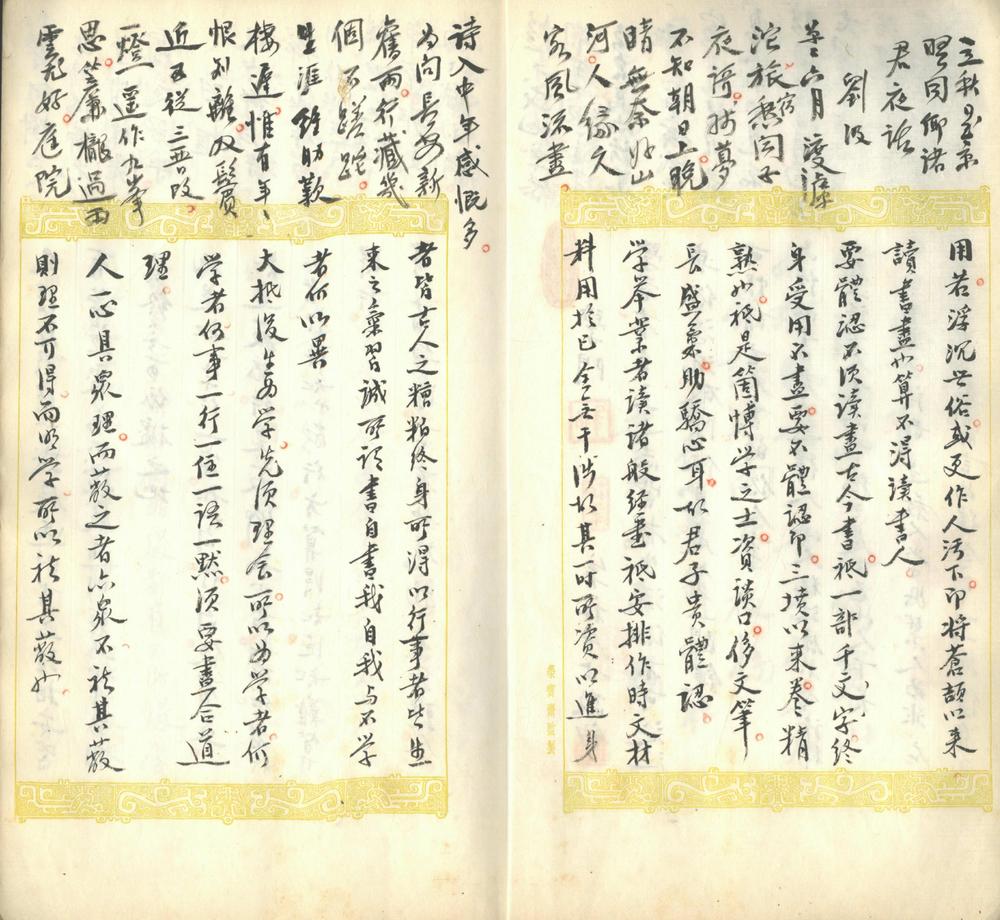 三秋日望京
墅同卿諸
君夜話
劉汲
六月渡滹
沱旅宿愁聞子
夜謌好夢
不知朝日上晚
晴無奈好山
河人緣久
客風流盡
用若浮沉世俗或更作人污下即將蒼頡以来
讀書盡也算不得讀書人
要體認不須读盡古今書祗一部千文字終
身受用不盡要不體認即三墳以来卷卷精
熟也祗是箇博学之士資談口侈文筆
長盛氣助驕心耳故君子貴體認
学举業者读諸般经書祗安排作時文材
料用於己全无干涉故其一时所资以進身
榮寶齋監製
詩入中年感慨多
为问長安新
舊雨行藏幾
個不蹉跎
生涯
棲遲惟有年々
恨别離双鬢
近五從三五改
一燈遥作九峯
思簾櫳過雨
雲飛好庭院
者皆古人之糟粕終身所得以行事者皆生
来之氣習誠所谓書自書我自我与不学
者何以異
大抵後生为学先須理会所以为学者何
学者何事一行一住一語一默須要盡合道
理
人一心具眾理而蔽之者亦眾不祛其蔽
則理不可得而明学所以祛其蔽也